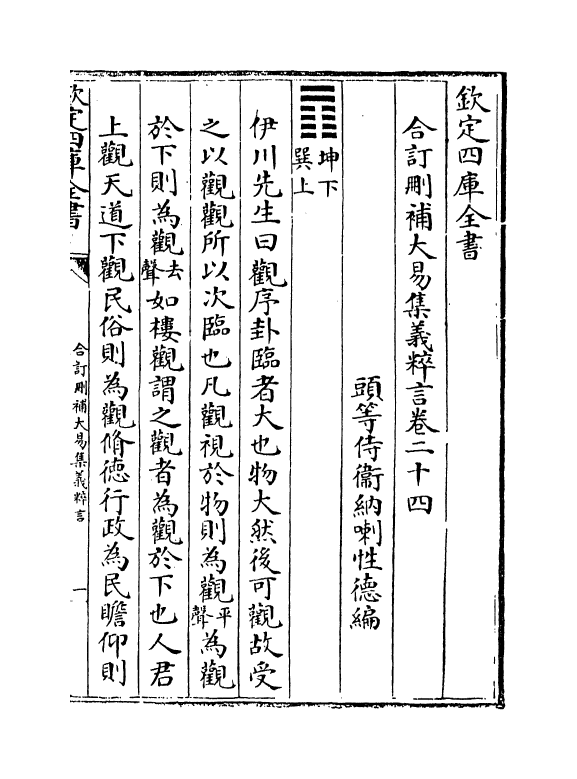 欽定四庫全書
合訂刪補大易集義粹言卷二十四
頭等侍衞納喇性德編
坤下
巽上
伊川先生曰觀序卦臨者大也物大然後可觀故受
之以觀觀所以次臨也凡觀視於物則為觀平聲為觀
於下則為觀去聲如樓觀謂之觀者為觀於下也人君
上觀天道下觀民俗則為觀脩德行政為民瞻仰則
欽定四庫全書
合訂刪補大易集義粹言
一